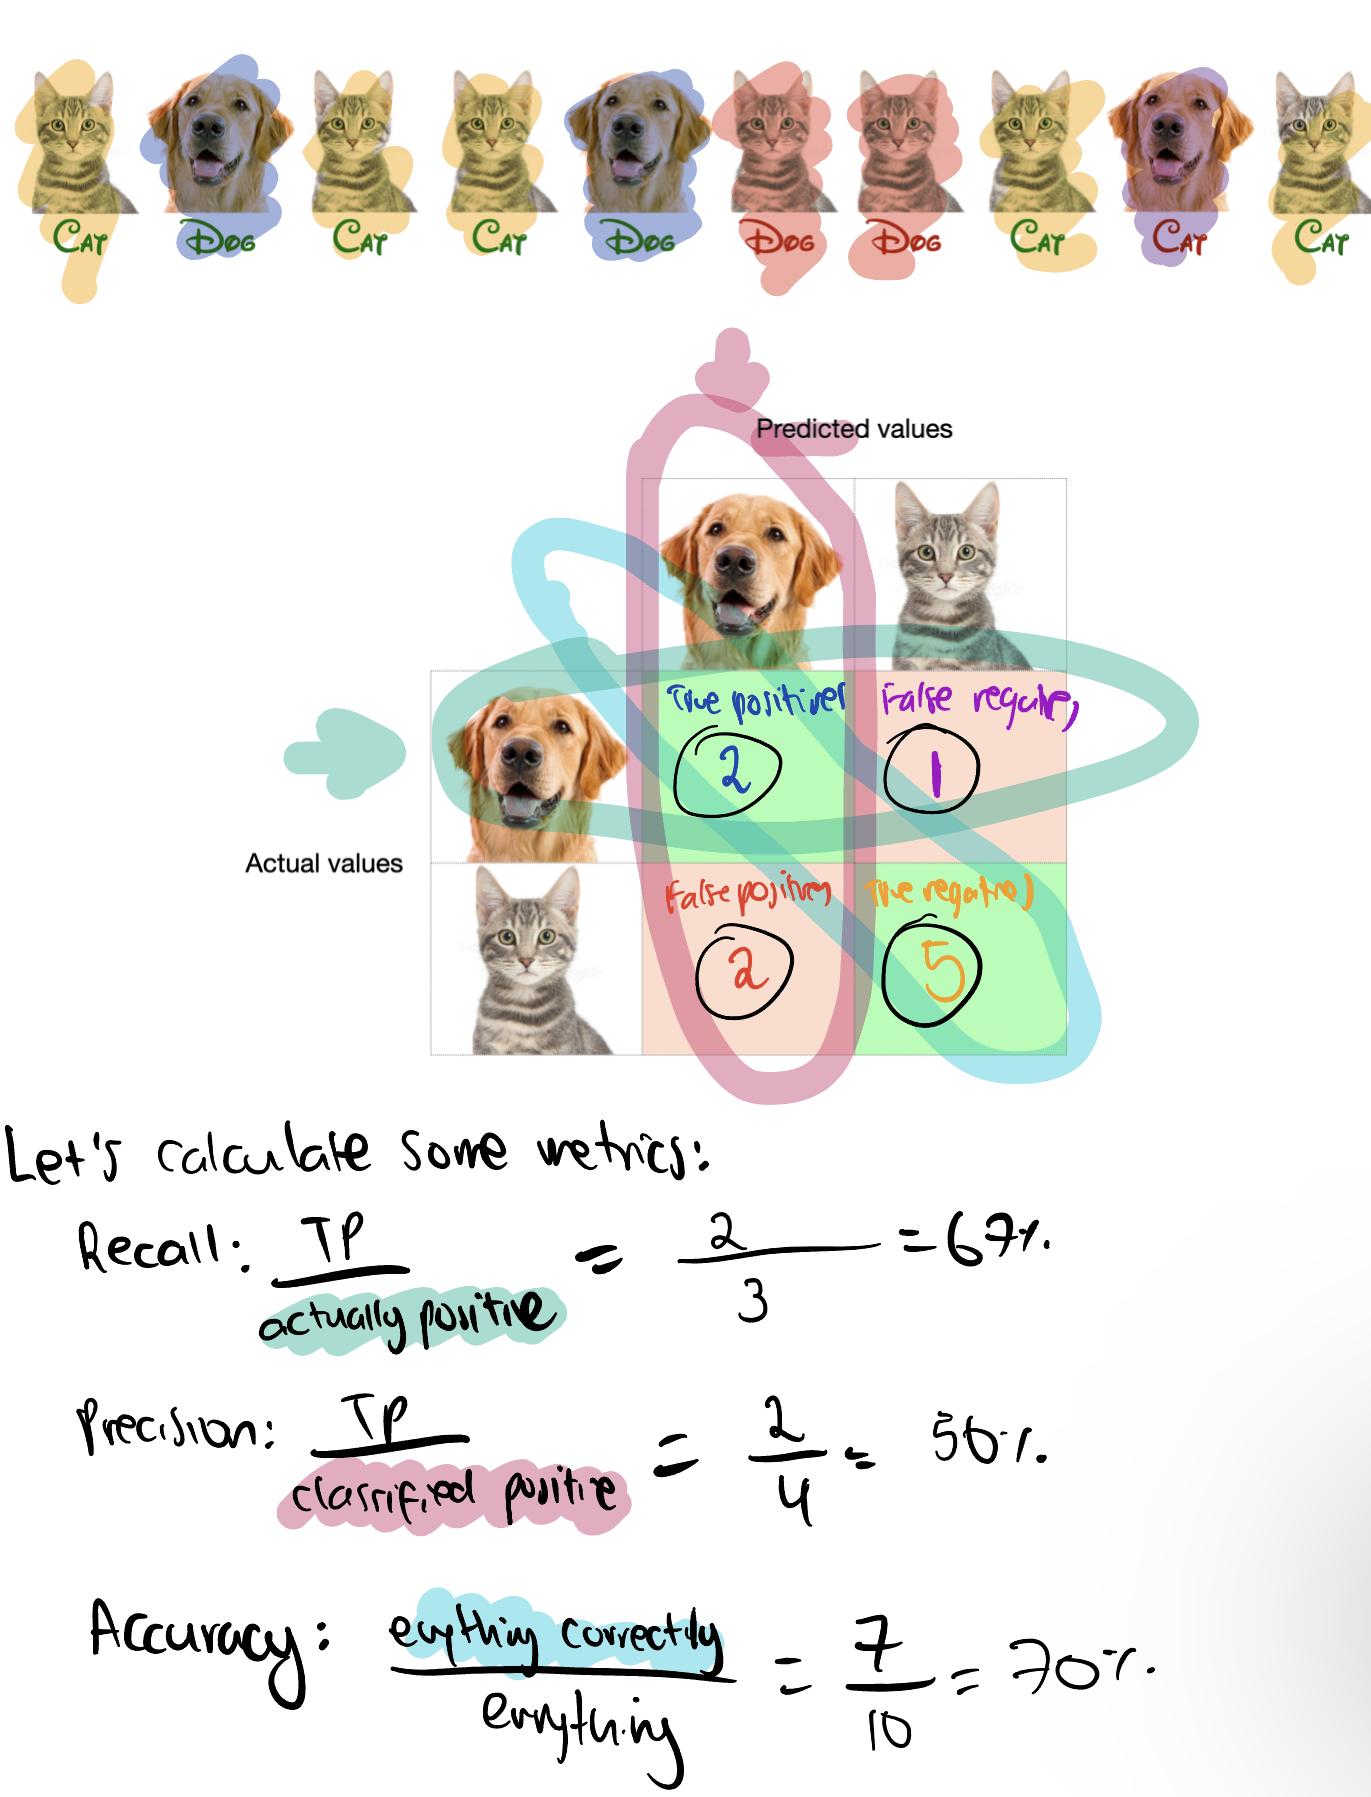 Cat Dog Cat Cat Dog Dog Dog Cat Cat Cat
Predicted values
True positives False negatives
2 1
Actual values
False positives True negatives
2 5
Let's calculate some metrics:
Recall: TP / actually positive = 2 / 3 = 67%
Precision: TP / classified positive = 2 / 4 = 50%
Accuracy: evrything correctly / evrything = 7 / 10 = 70%